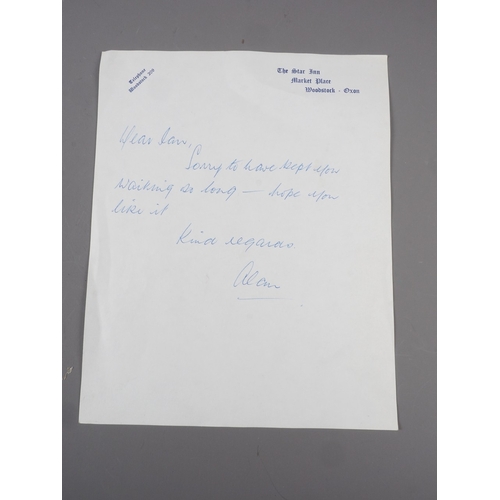 Telephone
Woodstock
The Star Inn
Market Place
Woodstock - Oxon
Dear Ian,
Sorry to have kept you
waiting so long — hope you
like it
Kind regards
Alan